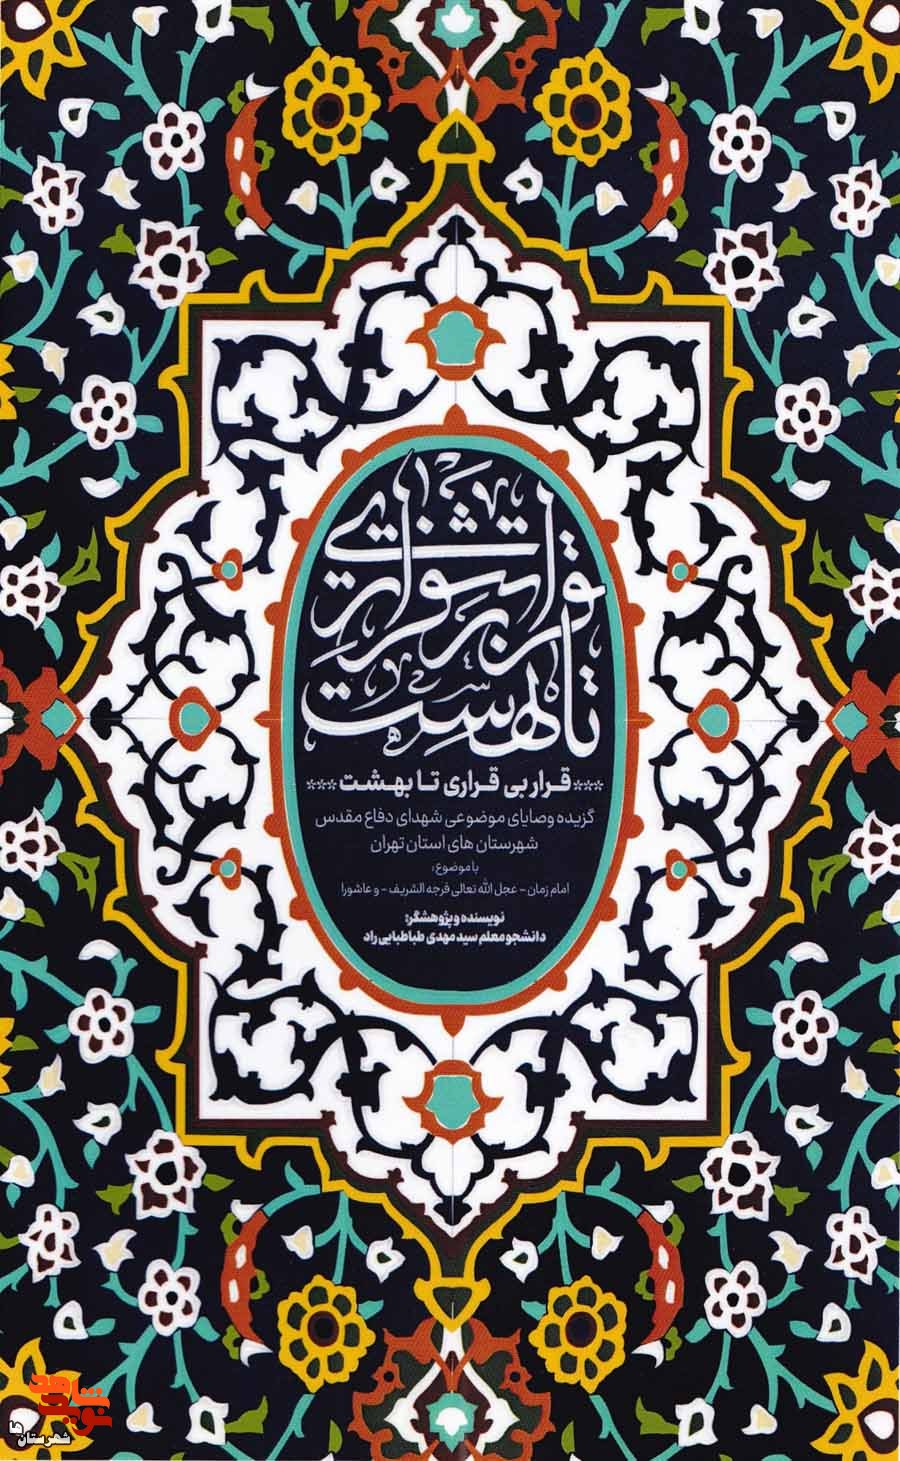 قرار بی قراری
تا بهشت
***قرار بی قراری تا بهشت***
گزیده وصایای موضوعی شهدای دفاع مقدس
شهرستان های استان تهران
با موضوع:
امام زمان - عجل الله تعالی فرجه الشریف - و عاشورا
نویسنده و پژوهشگر:
دانشجو معلم سید مهدی طباطبایی راد
نوید شاهد
شهرستان ها